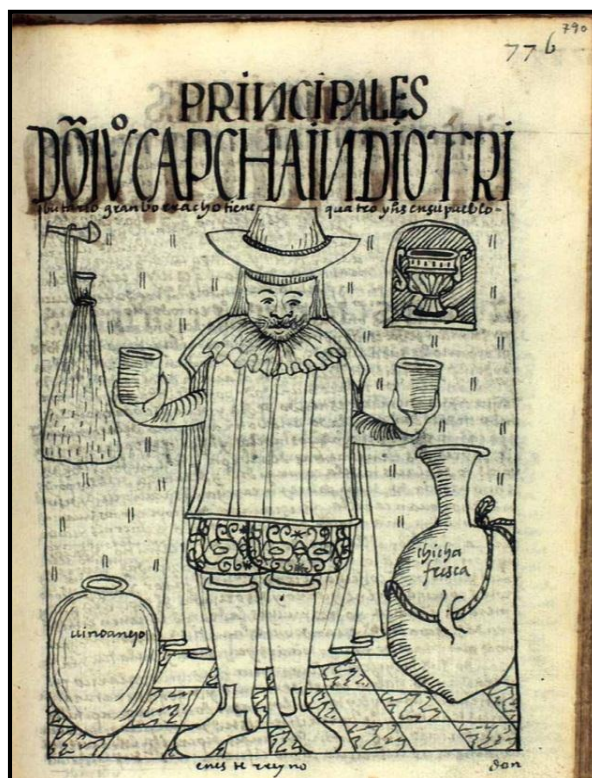 790
776
PRINCIPALES
DÕ IVº CAPCHA INDIO TRI
butario gran boracho tiene quatro yns en su pueblo-
chicha
fresca
uino anejo
en este rreyno
don